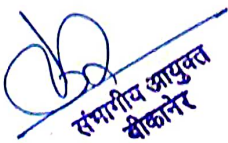 संभागीय आयुक्त
बीकानेर